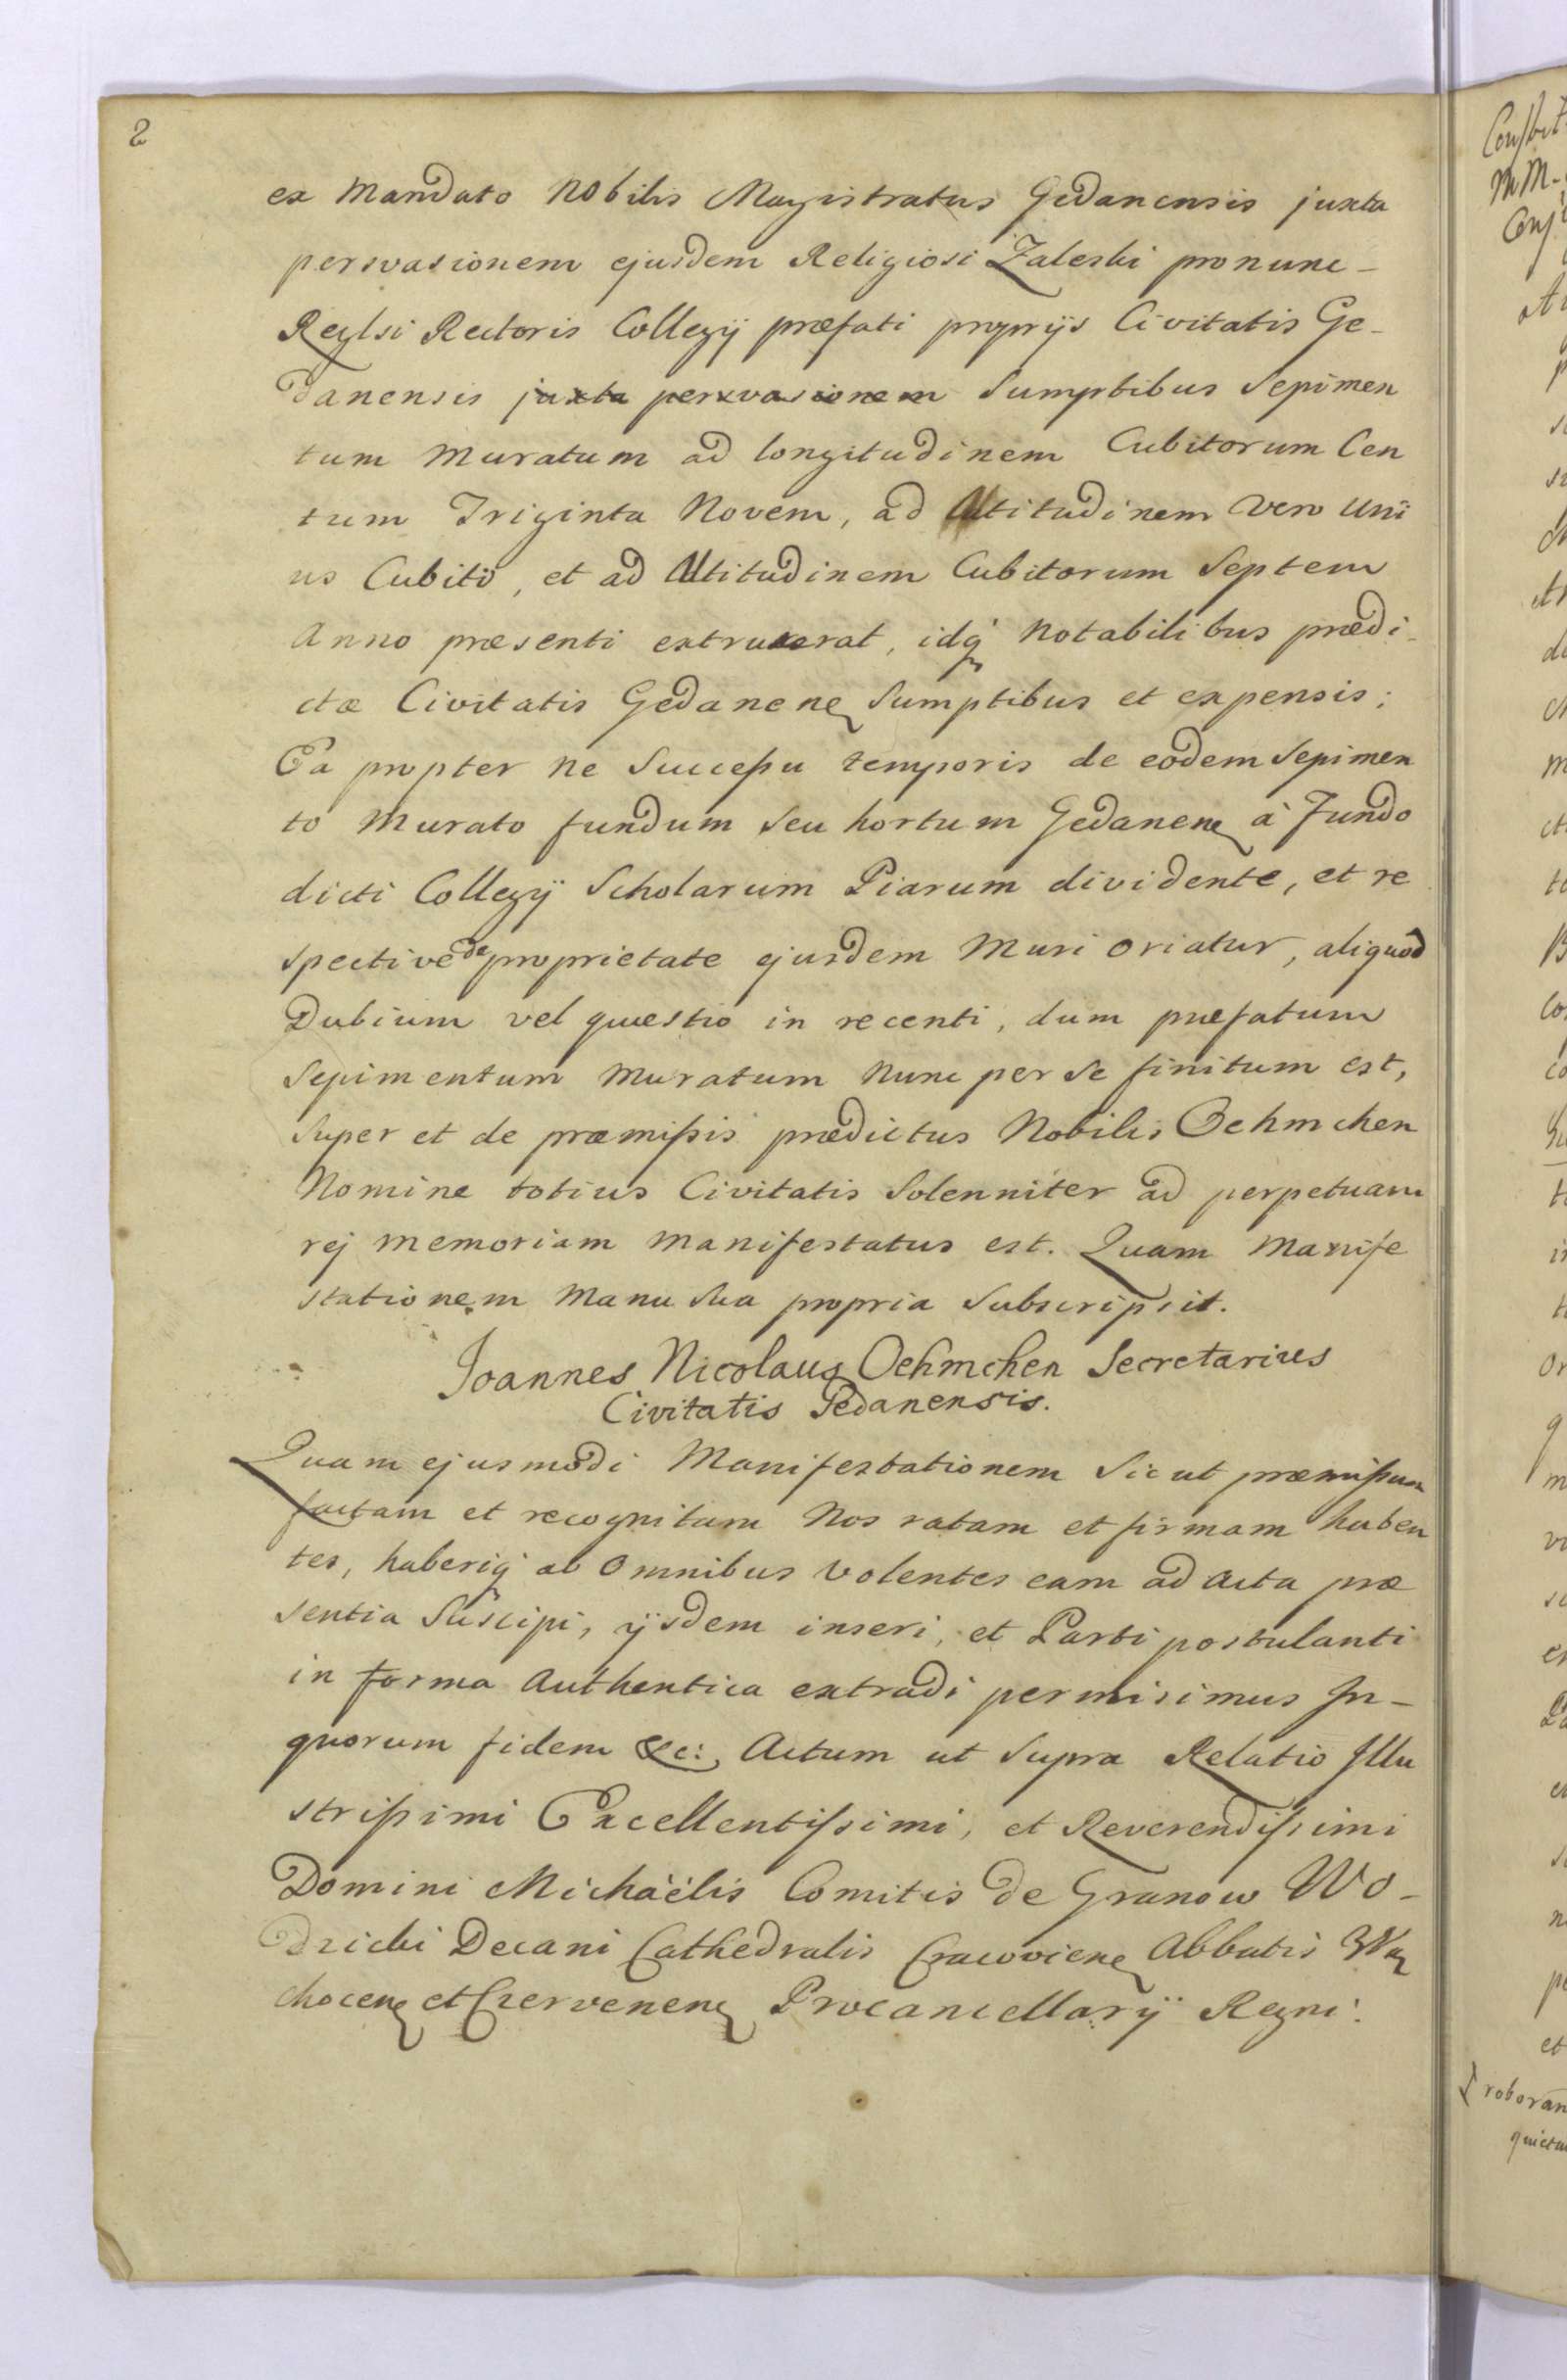 2
ex Mandato Nobilis Magistratus Gedanensis juxta
persvasionem ejusdem Religiosi Zaleski pro nunc -
Reglsi Rectoris Collegÿ præfati proprÿs Civitatis Ge -
danensis juxta persvasionem Sumptibus Sepimen
tum Muratum ad longitudinem Cubitorum Cen
tum Triginta Novem, ad Altitudinem vero Uni
us Cubiti, et ad Altitudinem Cubitorum Septem
Anno præsenti extruxerat, idq' Notabilibus prædi -
ctæ Civitatis Gedanen Sumptibus et expensis;
Ea propter ne Successu temporis de eodem Sepimen
to Murato fundum Seu hortum Gedanen à Fundo
dicti Collegÿ Scholarum Piarum dividente, et re
spective de proprietate ejusdem Muri oriatur, aliquod
Dubium vel quæstio in recenti, dum præfatum
Sepimentum Muratum Nunc per se finitum est,
Super et de præmissis prædictus Nobilis Oehmchen
Nomine totius Civitatis Solenniter ad perpetuam
rej memoriam Manifestatus est. Quam Manife
stationem Manu Sua propria Subscripsit.
Joannes Nicolaus Oehmchen Secretarius
Civitatis Gedanensis.
Quam ejusmodi Manifestationem Sicut præmissum
factam et recognitam Nos ratam et firmam haben
tes, haberiq' ab Omnibus Volentes eam ad Acta præ
sentia Suscipi, ÿsdem inseri, et Parti postulanti
in forma Authentica extradi permisimus In -
quorum fidem &c: Actum ut Supra Relatio Illu
strissimi Excellentissimi, et Reverendissimi
Domini Michaëlis Comitis de Granow Wo -
dzicki Decani Cathedralis Cracovien Abbatis Wą
chocen et Czervenen Procancellarÿ Regni.